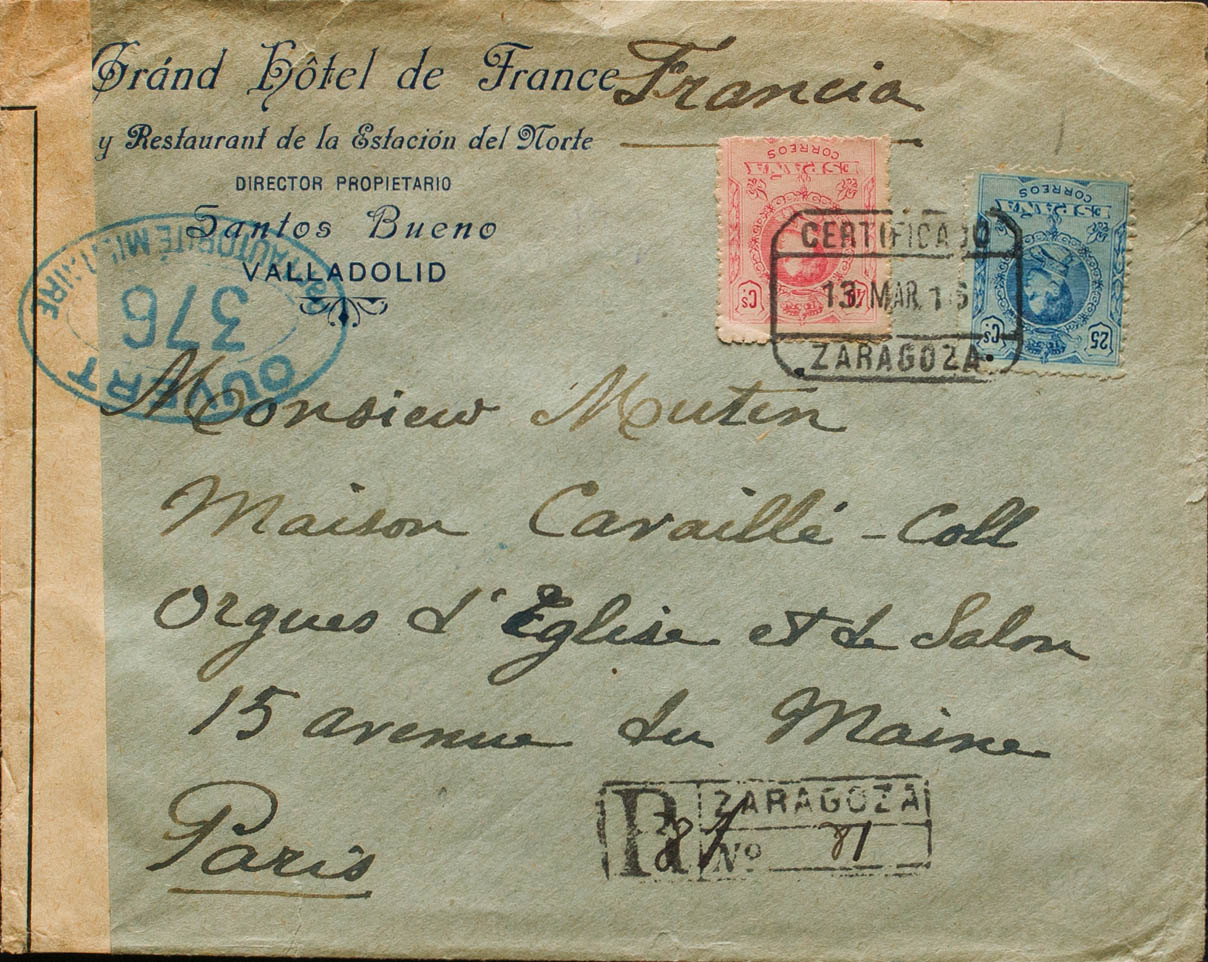 Gránd Hôtel de France
y Restaurant de la Estación del Norte
DIRECTOR PROPIETARIO
Santos Bueno
VALLADOLID
Francia
CORREOS
10 Cs
CORREOS
25 Cs
CERTIFICADO
13 MAR. 16
ZARAGOZA.
OUVERT
376
PAR L'AUTORITÉ MILITAIRE
Monsieur Mutin
Maison Cavaillé-Coll
Orgues d'Eglise et de Salon
15 avenue du Maine
Paris
R
ZARAGOZA
Nº 81